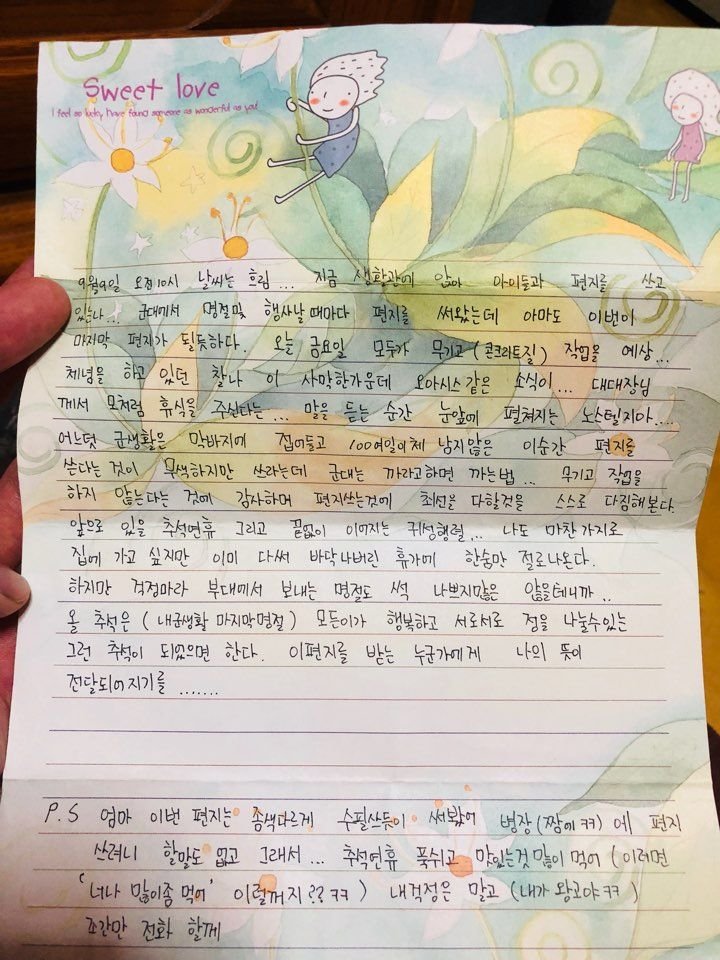 Sweet love
I feel so lucky, have found someone as wonderful as you!
9월9일 오전10시 날씨는 흐림... 지금 생활관에 앉아 아이들과 편지를 쓰고
있는나... 군대에서 명절및 행사날때마다 편지를 써왔는데 아마도 이번이
마지막 편지가 될듯하다. 오늘 금요일 모두가 무기고(콘크리트질) 작업을 예상...
체념을 하고 있던 찰나 이 사막한가운데 오아시스같은 소식이... 대대장님
께서 모처럼 휴식을 주신다는... 말을 듣는 순간 눈앞에 펼쳐지는 노스텔지아....
어느덧 군생활은 막바지에 접어들고 100여일이채 남지않은 이순간 편지를
쓴다는 것이 무색하지만 쓰라는데 군대는 까라고하면 까는법... 무기고 작업을
하지 않는다는 것에 감사하며 편지쓰는것에 최선을 다할것을 스스로 다짐해본다.
앞으로 있을 추석연휴 그리고 끝없이 이어지는 귀성행렬... 나도 마찬가지로
집에 가고 싶지만 이미 다써 바닥나버린 휴가에 한숨만 절로나온다.
하지만 걱정마라 부대에서 보내는 명절도 썩 나쁘지많은 않을테니까..
올 추석은 (내군생활 마지막명절) 모든이가 행복하고 서로서로 정을 나눌수있는
그런 추석이 되었으면 한다. 이편지를 받는 누군가에게 나의 뜻이
전달되어지기를.......
P.S 엄마 이번 편지는 좀색다르게 수필쓰듯이 써봤어 병장(짬에ㅋㅋ)에 편지
쓰려니 할말도 없고 그래서... 추석연휴 푹쉬고 맛있는것많이 먹어 (이러면
'너나 많이좀 먹어' 이럴꺼지?? ㅋㅋ) 내걱정은 말고 (내가 왕고야ㅋㅋ)
조간만 전화 할께